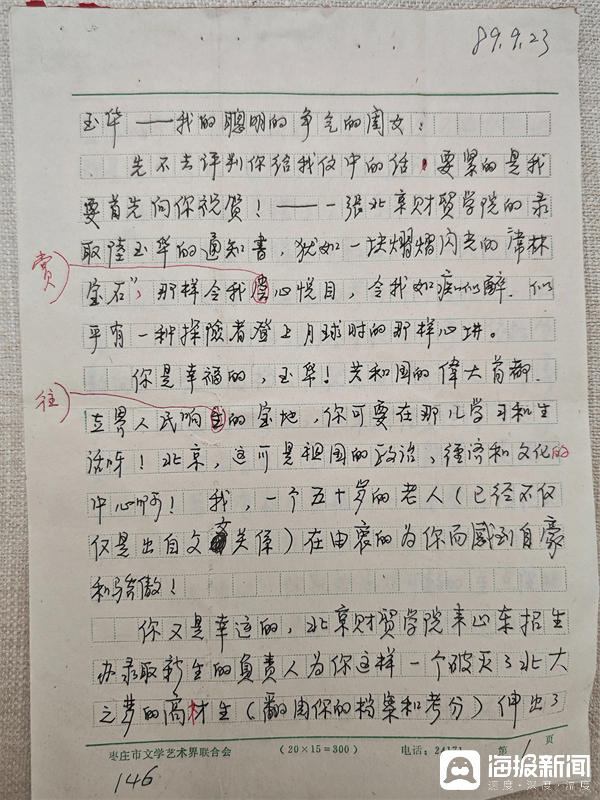 89.9.23
玉华——我的聪明的争气的闺女：
先不去评判你给我信中的话，要紧的是我
要首先向你祝贺！——一张北京财贸学院的录
取陸玉华的通知書，犹如一块熠熠闪光的津林
赏
宝石”，那样令我赏心悦目，令我如痴似醉，似
乎有一种探險者登上月球时的那样心境。
你是幸福的，玉华！共和国的偉大首都，
往
世界人民响往的宝地，你可要在那儿学习和生
活呀！北京，这可是祖国的政治、经济和文化的
中心啊！我，一个五十岁的老人（已经不仅
仅是出自父女关係）在由衷的为你而感到自豪
和骄傲！
你又是幸运的，北京财贸学院来山东招生
办录取新生的负责人为你这样一个破灭了北大
之梦的高材生（翻阅你的档案和考分）伸出了
枣庄市文学艺术界联合会 （20×15＝300） 电话：24171 第 1 页
146
海报新闻
速度·深度·温度